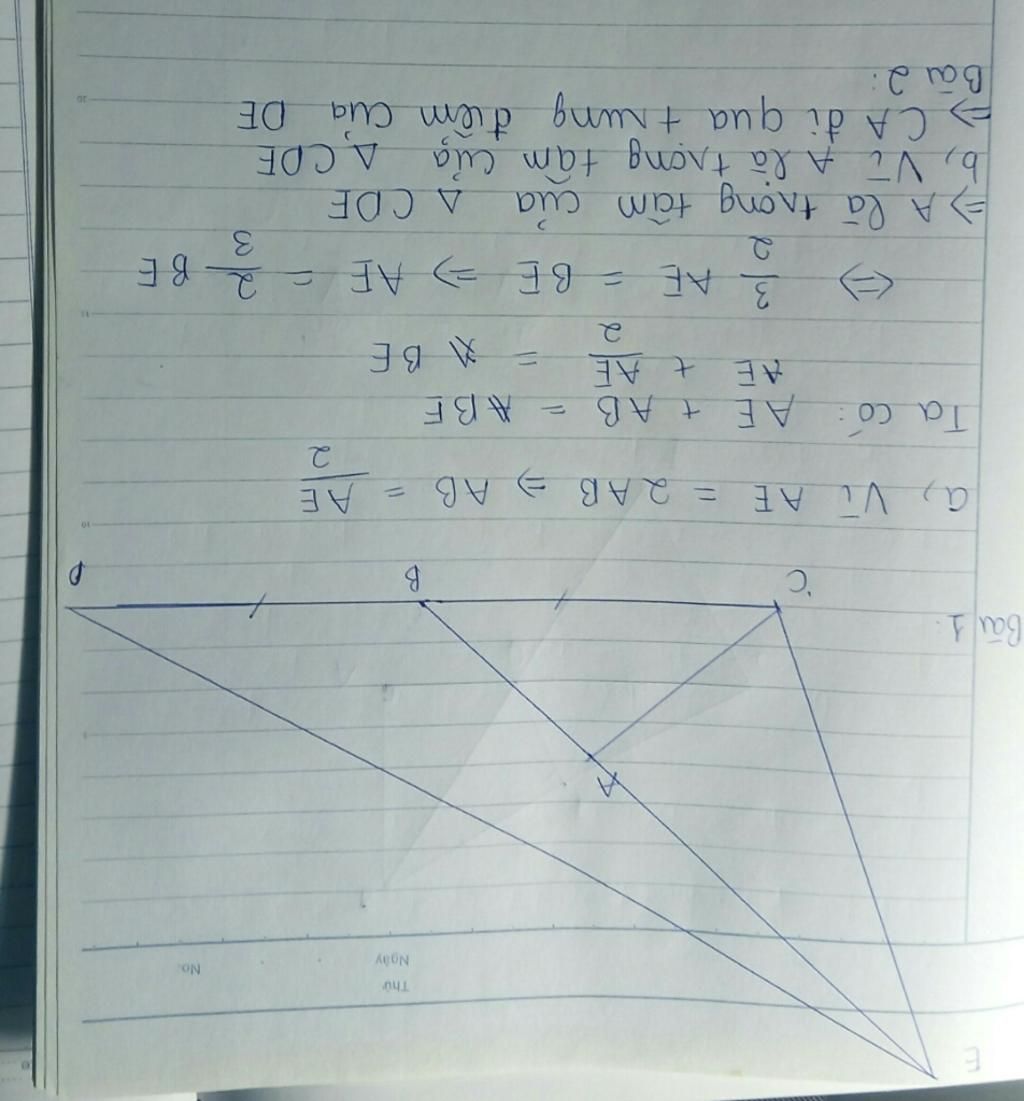 Thứ
Ngày
No.
E
A
Bài 1:
C B D
a, Vì AE = 2AB => AB = AE/2
Ta có: AE + AB = BE
AE + AE/2 = BE
<=> 3/2 AE = BE => AE = 2/3 BE
=> A là trọng tâm của Δ CDE
b, Vì A là trọng tâm của Δ CDE
=> CA đi qua trung điểm của DE
Bài 2: